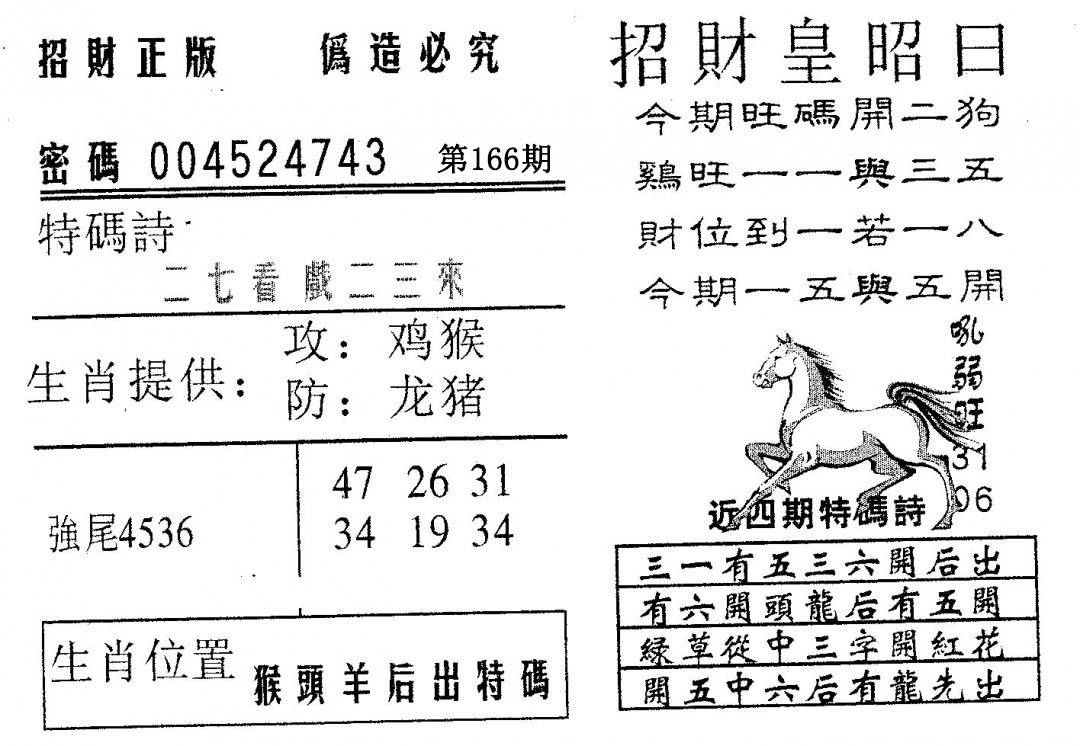 招財正版 僞造必究
密碼 004524743 第166期
特碼詩
二七看戲二三來
生肖提供：
攻：鸡猴
防：龙猪
強尾4536
47 26 31
34 19 34
生肖位置 猴頭羊后出特碼
招財皇昭日
今期旺碼開二狗
鷄旺一一與三五
財位到一若一八
今期一五與五開
吼弱旺
31
06
近四期特碼詩
三一有五三六開后出
有六開頭龍后有五開
緑草從中三字開紅花
開五中六后有龍先出